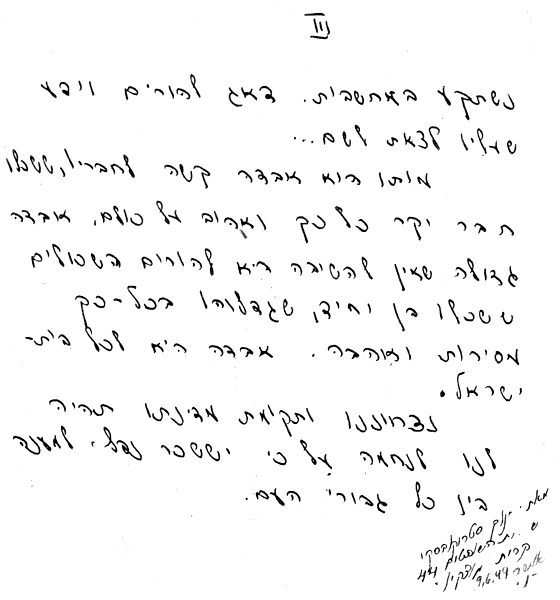 III
נשתקע במחשבות. דאג להורים וידע
שעליו לצאת לשם...
מותו הוא אבדה קשה לחבריו, ששכלו
חבר יקר כל כך ואהוב על כולם, אבדה
גדולה שאין להשיבה היא להורים השכולים
ששכלו בן יחיד, שגדלוהו בכל-כך
מסירות ואהבה. אבדה היא לכל בית-
ישראל.
נצחוננו ותקומת מדינתנו תהיה
לנו לנחמה על כי יששכר נפל למענה
בין כל גבורי העם.
מאת
קרית מוצקין
9.6.49